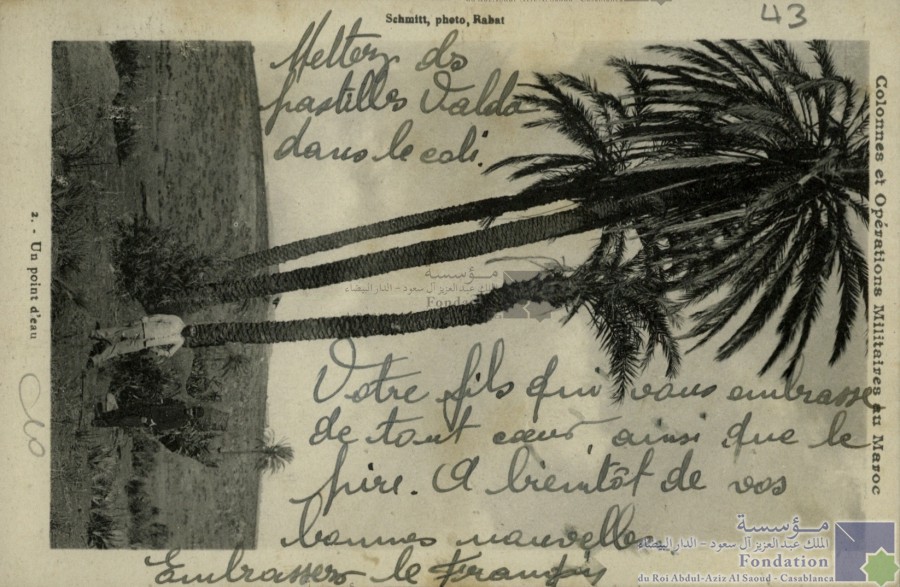 Schmitt, photo, Rabat
43
Mettez ds
pastilles Valda
dans le coli.
Colonnes et Opérations Militaires au Maroc
2. - Un point d'eau
Votre fils qui vous embrasse
de tout cœur, ainsi que le
père. A bientôt de vos
bonnes nouvelles
Embrassez le
مؤسسة
الملك عبد العزيز آل سعود - الدار البيضاء
Fondation
مؤسسة
الملك عبد العزيز آل سعود - الدار البيضاء
Fondation
du Roi Abdul-Aziz Al Saoud - Casablanca